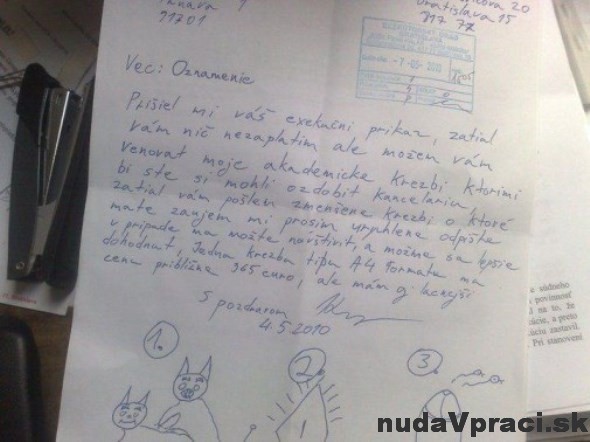 91701
Bratislava 15
917 77
-7-05-2010
Vec: Oznamenie
Prišiel mi váš exekučni prikaz, zatial
vám nič nezaplatim ale možem vám
venovat moje akademicke krezbi ktorimi
bi ste si mohli ozdobit kancelariu,
zatial vám pošlem zmenšene krezbi o ktoré
mate zaujem mi prosim urychlene odpište
v pripade ma možte navštivit a možme sa lepšie
dohodnut, Jedna krezba tipu A4 formatu ma
cenu približne 365 euro, ale mám aj lacnejši
S pozdravom
4.5.2010
1.
2.
3.
1
súdneho
povinnosť
na to, že
a preto
zastavil.
Pri stanovení
nudaVpraci.sk